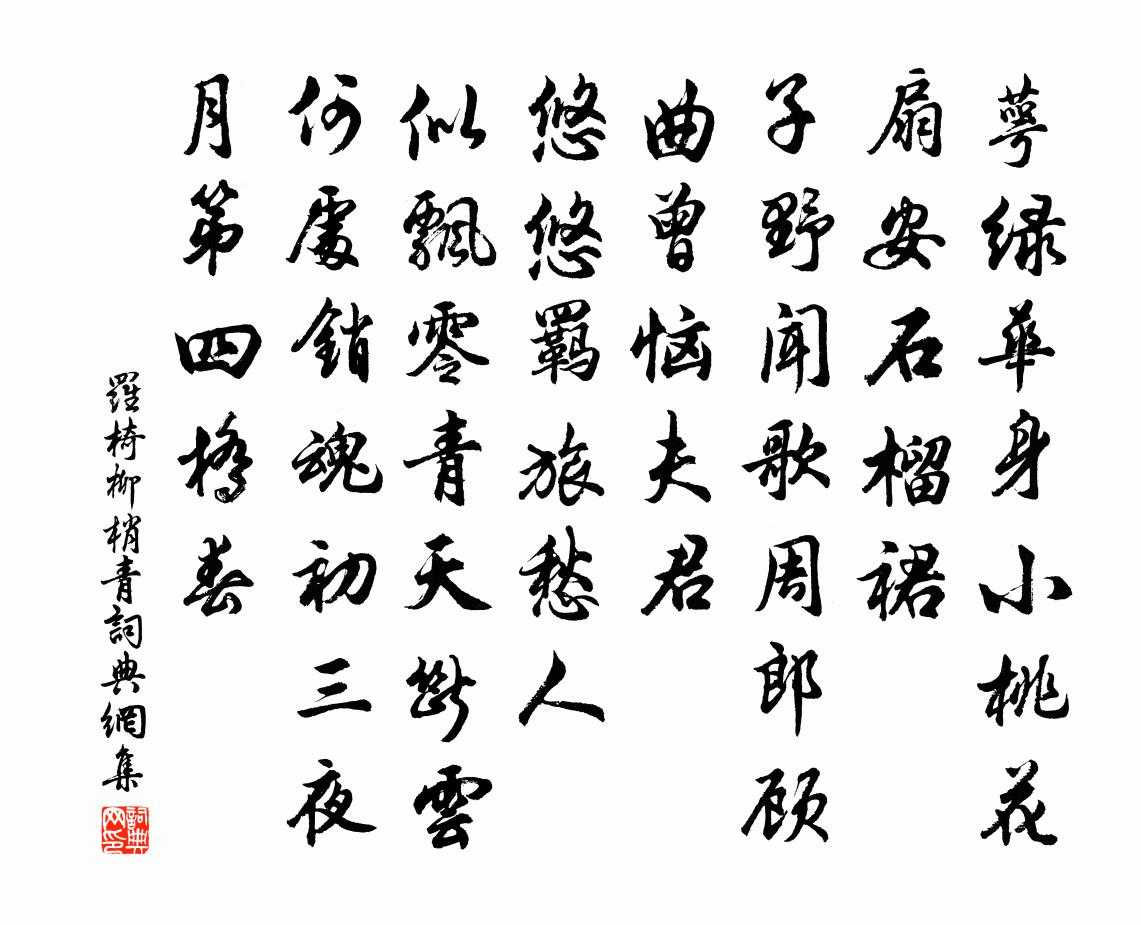 萼绿华身小桃花
扇安石榴裙
子野闻歌周郎顾
曲曾恼夫君
悠悠羁旅愁人
似飘零青天断雲
何處銷魂初三夜
月第四橋春
羅椅柳梢青詞典網集
詞典网印